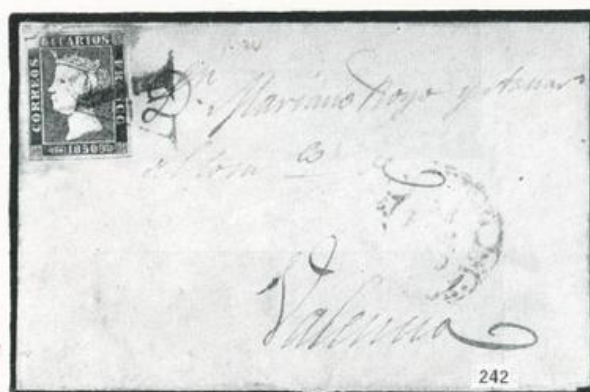 6 CUARTOS
CORREOS
FRANCO
1850
Dn
Mariano Royo y
del Com co de
Valencia
242